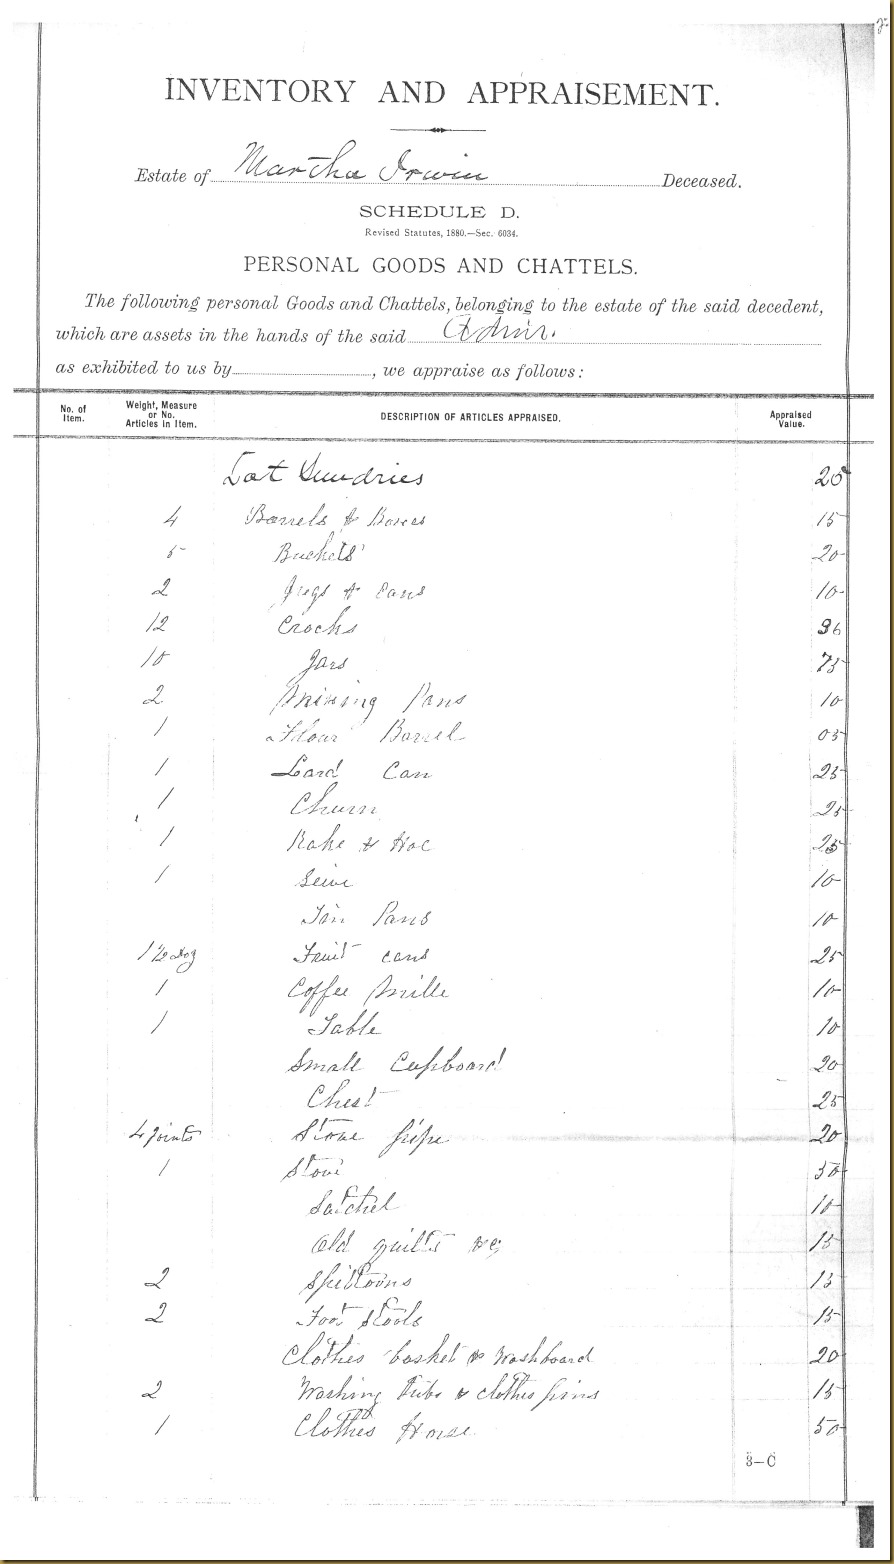 INVENTORY AND APPRAISEMENT.
Estate of Martha Irwin Deceased.
SCHEDULE D.
Revised Statutes, 1880.—Sec. 6034.
PERSONAL GOODS AND CHATTELS.
The following personal Goods and Chattels, belonging to the estate of the said decedent,
which are assets in the hands of the said Admr.
as exhibited to us by , we appraise as follows:
No. of Item. Weight, Measure or No. Articles in Item. DESCRIPTION OF ARTICLES APPRAISED. Appraised Value.
Lot Sundries 20
4 Barrels & Boxes 15
5 Buckets 20
2 Jugs & Cans 10
12 Crocks 36
10 Jars 75
2 Mixing Pans 10
1 Flour Barrel 05
1 Lard Can 25
1 Churn 25
1 Rake & Hoe 25
1 Seive 10
Tin Pans 10
1½ Doz Fruit cans 25
1 Coffee Mille 10
1 Table 10
Small Cupboard 20
Chest 25
4 Joints Stove pipe 20
1 Stove 50
Satchel 10
Old quilts &c 15
2 Spittoons 15
2 Foot Stools 15
Clothes basket & Washboard 20
2 Washing Tubs & clothes pins 15
1 Clothes Horse 50
3—C